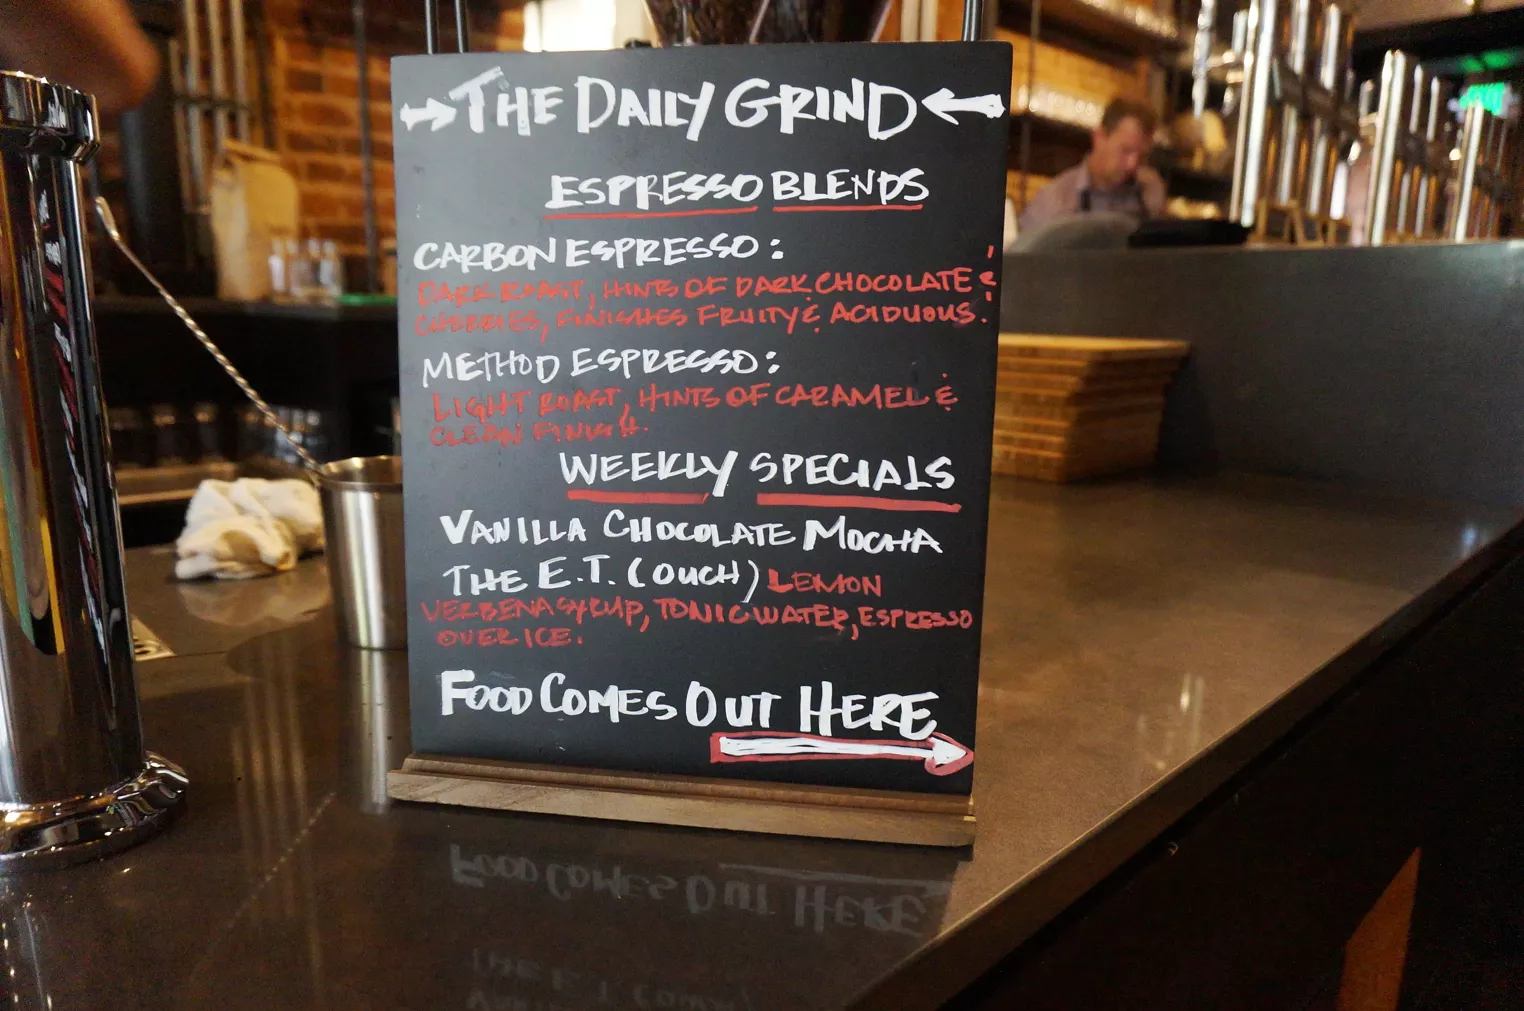 → THE DAILY GRIND ←
ESPRESSO BLENDS
CARBON ESPRESSO:
DARK ROAST, HINTS OF DARK CHOCOLATE &
CHERRIES, FINISHES FRUITY & ACIDUOUS!
METHOD ESPRESSO:
LIGHT ROAST, HINTS OF CARAMEL &
CLEAN FINISH.
WEEKLY SPECIALS
VANILLA CHOCOLATE MOCHA
THE E.T. (OUCH) LEMON
VERBENA SYRUP, TONIC WATER, ESPRESSO
OVER ICE.
FOOD COMES OUT HERE
→